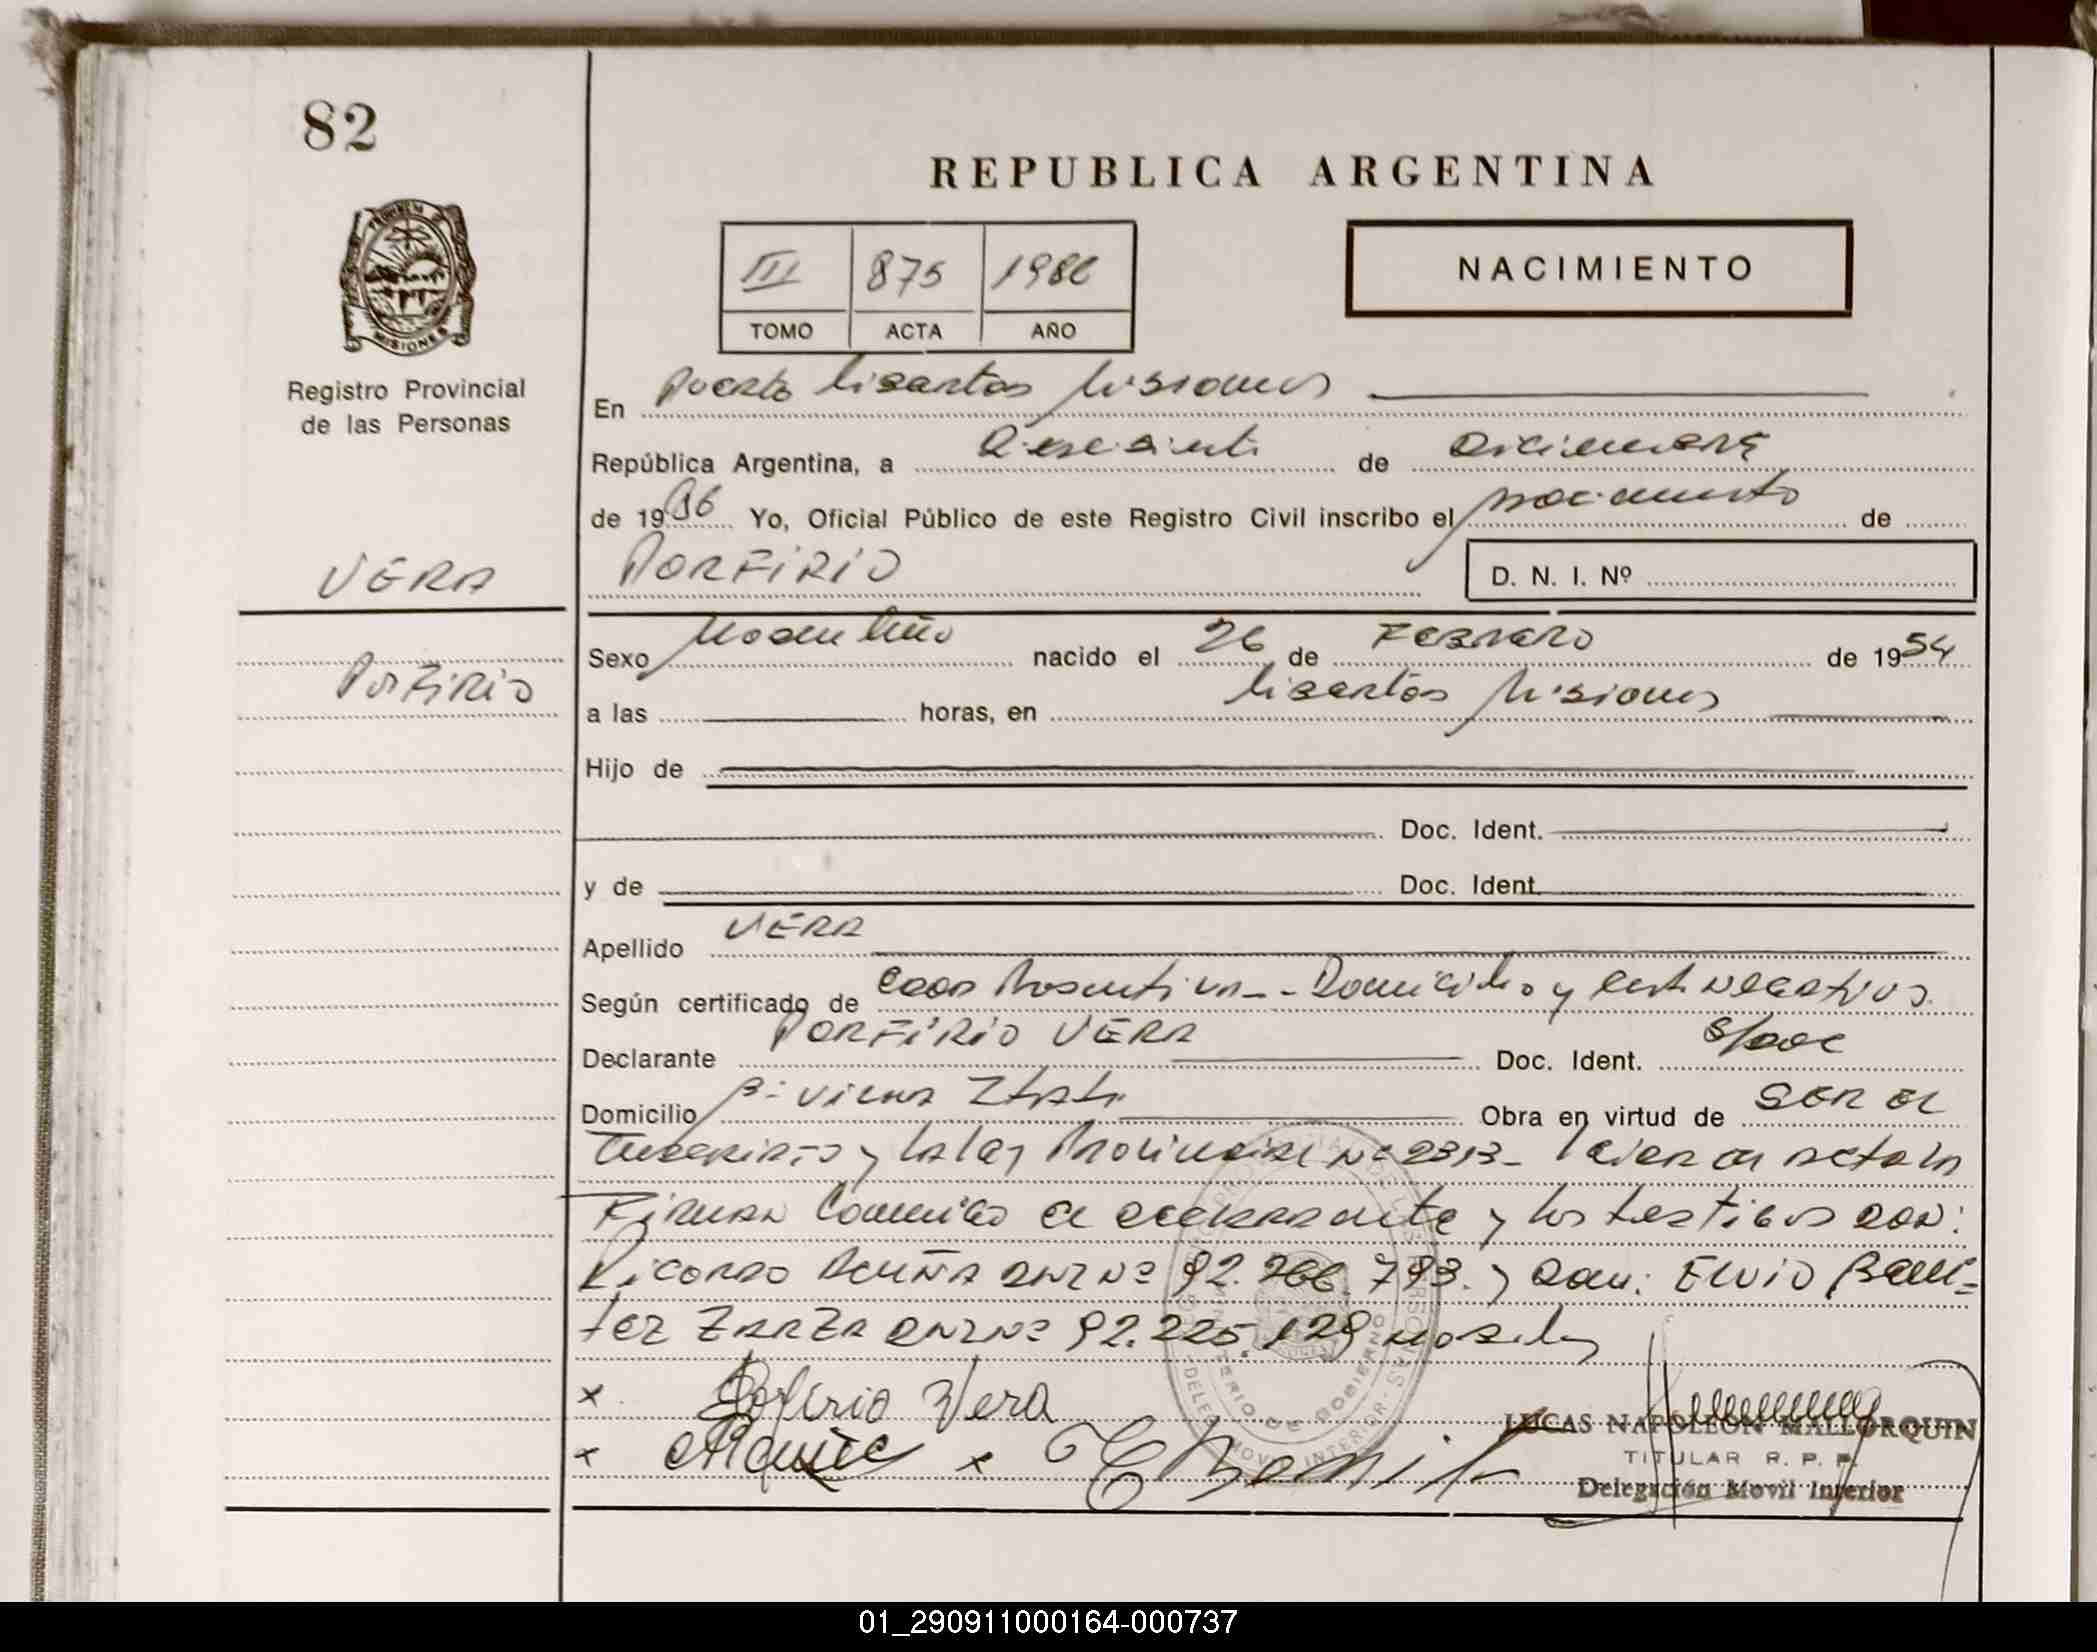 82
REPUBLICA ARGENTINA
III 875 1986
TOMO ACTA AÑO
NACIMIENTO
PROVINCIA DE
MISIONES
Registro Provincial
de las Personas
En Puerto Libertad Misiones
República Argentina, a de Diciembre
de 1986 Yo, Oficial Público de este Registro Civil inscribo el nacimiento de
VERA
PORFIRIO
D. N. I. Nº
Porfirio
Sexo Masculino nacido el 26 de Febrero de 1954
a las horas, en Libertad Misiones
Hijo de
Doc. Ident.
y de Doc. Ident.
Apellido VERA
Según certificado de Domicilio y Negativos
Declarante PORFIRIO VERA Doc. Ident. S/Doc
Domicilio Obra en virtud de SER EL
y la Ley Provincial Nº Leida el acta la
Firman Conmigo el declarante y los testigos Don:
Ricardo Acuña DNI Nº 92.266.793. y Don: Elvio Bení=
tez ZARZA DNI Nº 92.225.129
x Porfirio Vera
x x
LUCAS NAPOLEON MALLORQUIN
TITULAR R. P. P.
Delegación Movil Interior
01_290911000164-000737